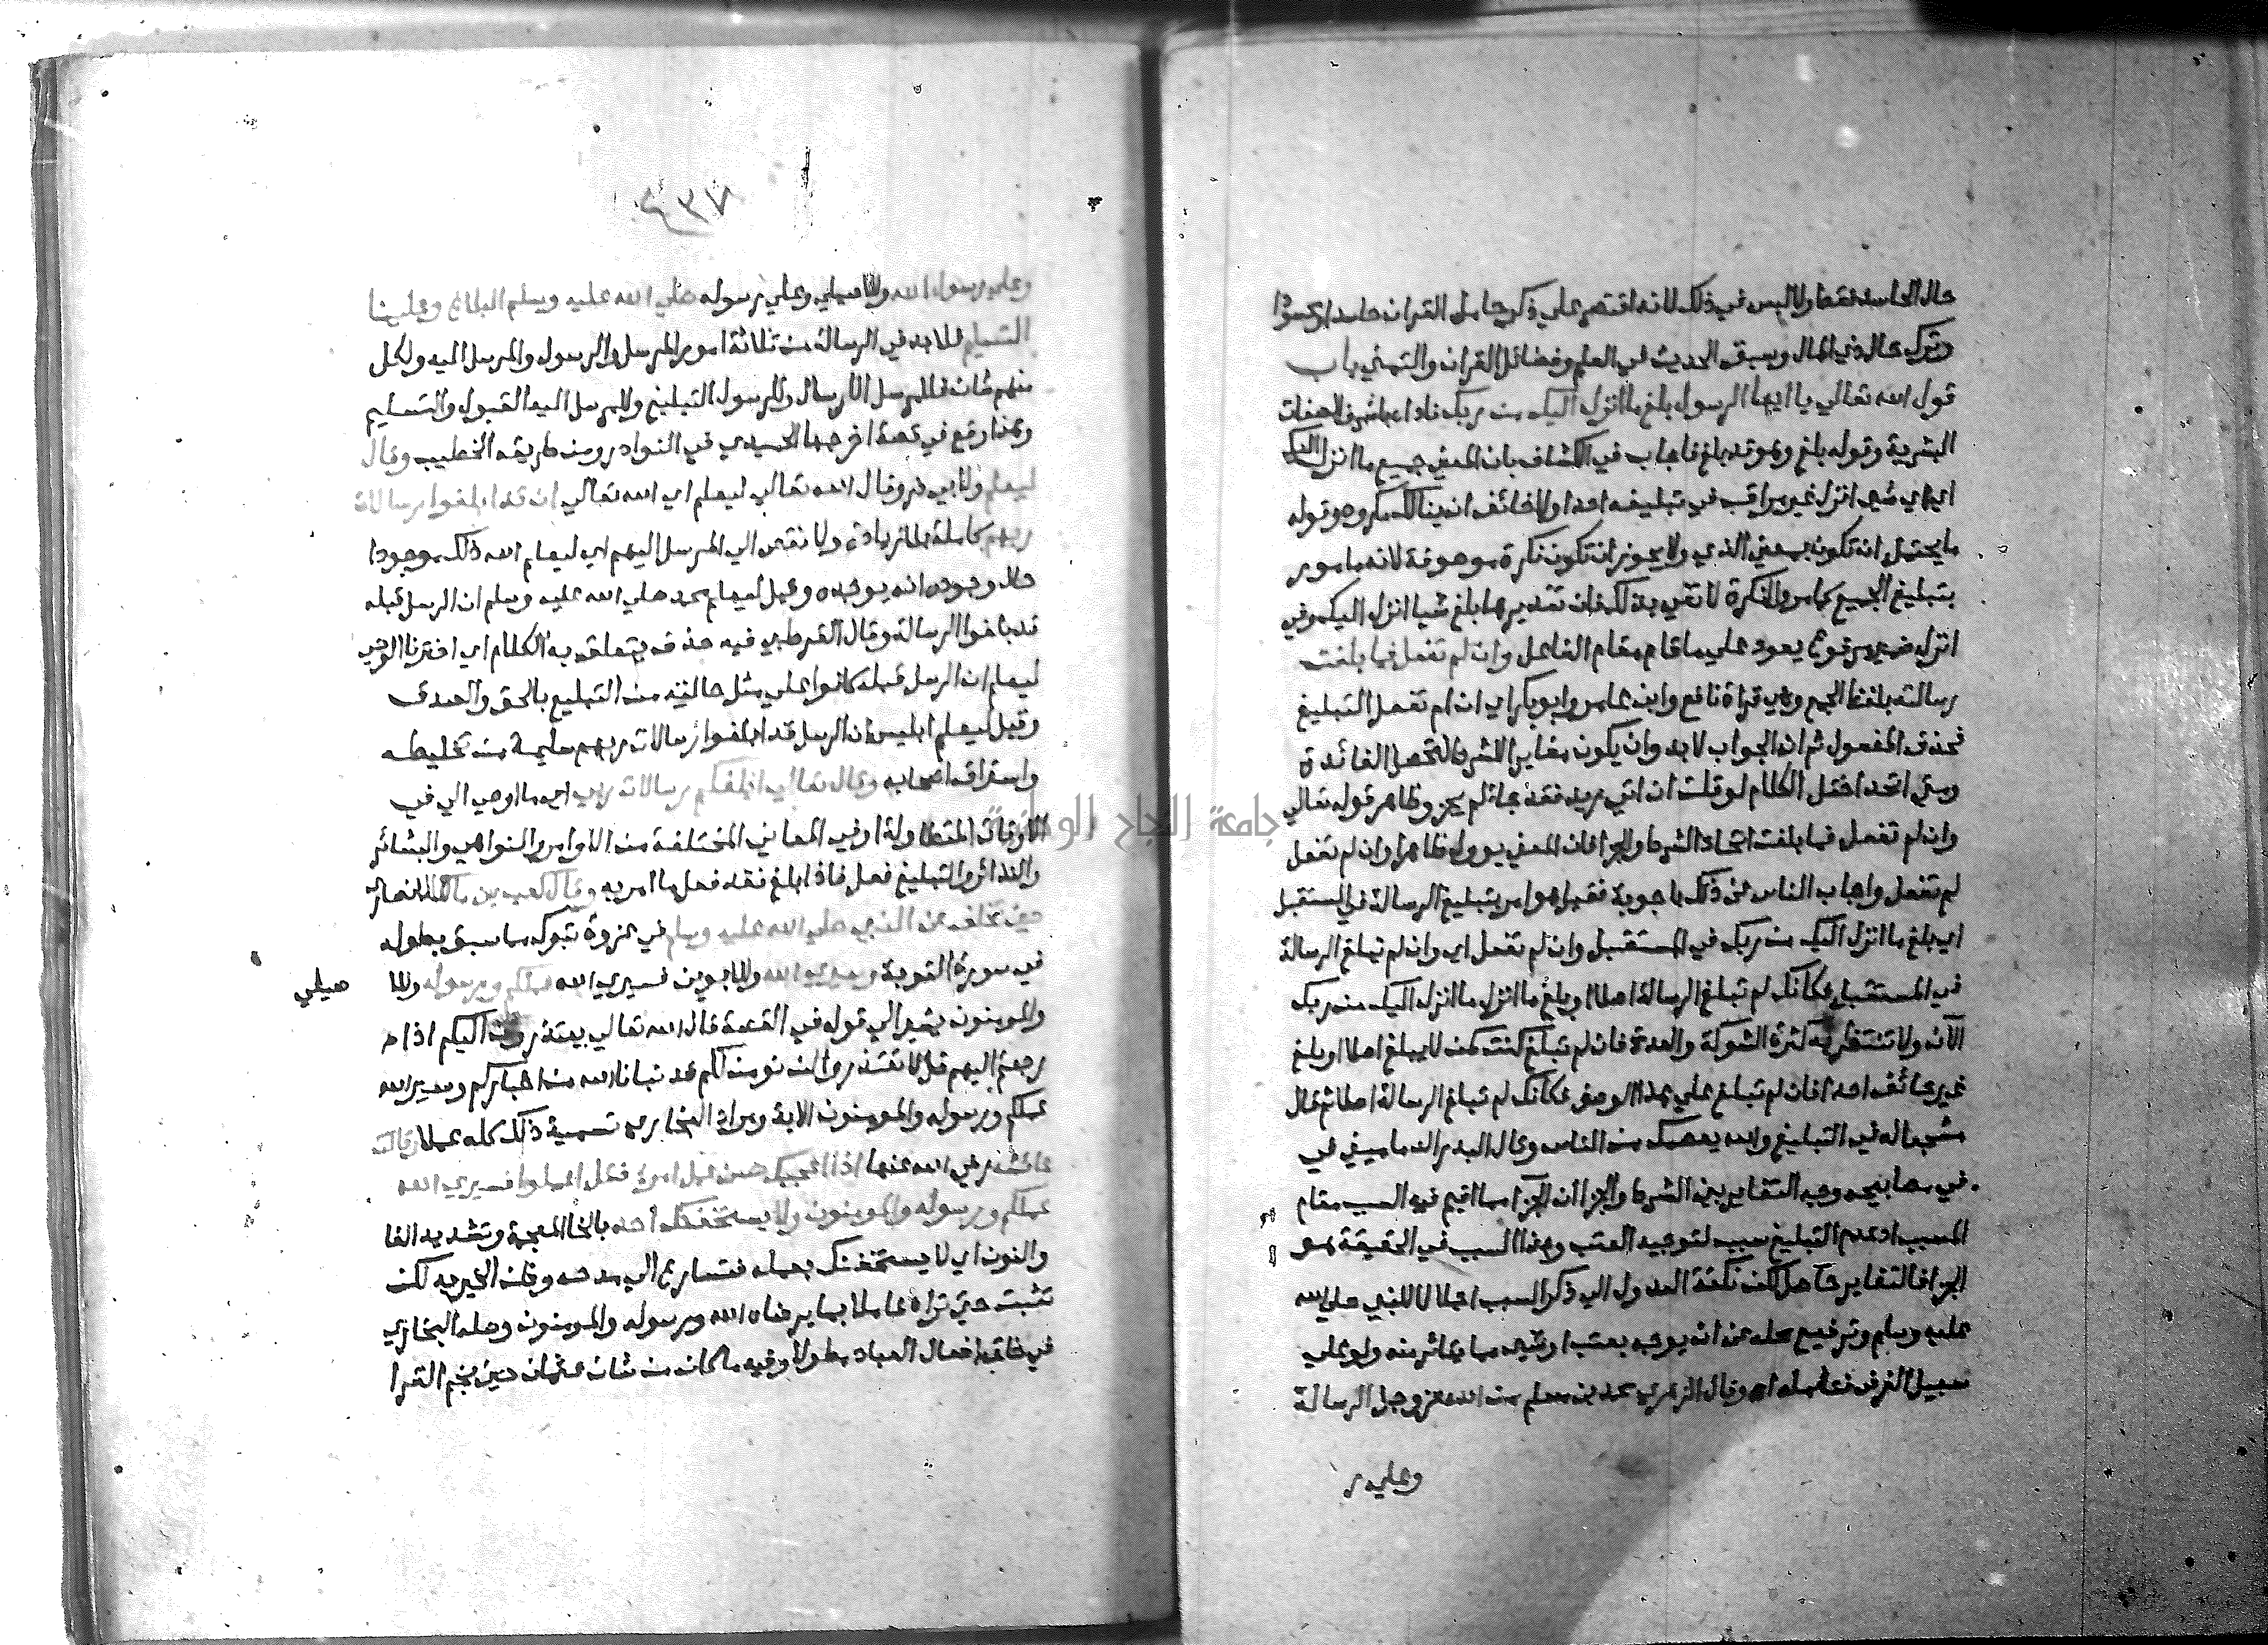 حال الحاسد فقط ولا لبس في ذلك لانه اقتصر علي ذكر حامل القران حاسدا ومحسودا
وترك حال ذي المال وسبق الحديث في العلم وفضائل القران والتمني باب
قول الله تعالي يا ايها الرسول بلغ ما انزل اليك من ربك ناداه باشرف الصفات
البشرية وقوله بلغ وهو قد بلغ فاجاب في الكشاف بان المعني جميع ما انزل اليك
اي اي شي انزل غير مراقب في تبليغه احدا ولا خائف ان ينالك مكروه وقوله
ما يحتمل ان تكون بمعني الذي ولا يجوز ان تكون نكرة موصوفة لانه مامور
بتبليغ الجميع كما مر والنكرة لا تفي بذلك فان تقديرها بلغ شيا انزل اليك وفي
انزل ضمير مرفوع يعود علي ما قام مقام الفاعل وان لم تفعل فما بلغت
رسالته بلفظ الجمع وهي قراة نافع وابن عامر وابو بكر اي ان لم تفعل التبليغ
فحذف المفعول ثم ان الجواب لا بد وان يكون مغاير الشرط لتحصل الفائدة
ومتي اتحدا اختل الكلام لو قلت ان اتي زيد فقد جا لم يجز وظاهر قوله تعالي
وان لم تفعل فما بلغت اتحاد الشرط والجزا فان المعني يوول ظاهرا وان لم تفعل
لم تفعل واجاب الناس عن ذلك باجوبة فقيل هو امر بتبليغ الرسالة في المستقبل
اي بلغ ما انزل اليك من ربك في المستقبل وان لم تفعل اي وان لم تبلغ الرسالة
في المستقبل فكانك لم تبلغ الرسالة اصلا او بلغ ما انزل ما انزل اليك من ربك
الآن ولا تنتظر به كثرة الشوكة والعدة فان لم تبلغ كنت كمن لا يبلغ اصلا او بلغ
غير خائف احدا فان لم تبلغ علي هذا الوصف فكانك لم تبلغ الرسالة اصلا ثم قال
مشجعا له في التبليغ والله يعصمك من الناس وقال البدر الدماميني في
في مصابيحه وجه التغاير بين الشرط والجزا ان الجزا مما اقيم فيه السبب مقام
المسبب اذ عدم التبليغ سبب لتوجيه العتب وهذا السبب في الحقيقة هو
الجزا فالتغاير حاصل لكن نكتة العدول الي ذكر السبب اجلالا للنبي صلي الله
عليه وسلم وترفيع محله عن ان يوجه بعتب او شي مما يتاثر منه ولو علي
سبيل الفرض فتامله اه وقال الزهري محمد بن مسلم من الله عز وجل الرسالة
وعلي ر
٤٣٧
وعلي رسول الله وللاصيلي وعلي رسوله صلي الله عليه وسلم البلاغ وعلينا
التسليم فلا بد في الرسالة من ثلاثة امور المرسل والرسول والمرسل اليه ولكل
منهم شان فللمرسل الارسال وللرسول التبليغ وللمرسل اليه القبول والتسليم
وهذا وقع في قصة اخرجها الحميدي في النوادر ومن طريقه الخطيب وقال
ليعلم ولابي ذر وقال الله تعالي ليعلم اي الله تعالي ان قد ابلغوا رسالات
ربهم كاملة بلا زيادة ولا نقص الي المرسل اليهم اي ليعلم الله ذلك موجودا
حال وجوده انه يوجده وقيل ليعلم محمد صلي الله عليه وسلم ان الرسل قبله
قد بلغوا الرسالة وقال القرطبي فيه حذف يتعلق به الكلام اي اخترنا الوحي
ليعلم ان الرسل قبله كانوا علي مثل حالته من التبليغ بالحق والصدق
وقيل ليعلم ابليس ان الرسل قد ابلغوا رسالات ربهم سليمة من تخليطه
واستراق اصحابه وقال تعالي ابلغكم رسالات ربي اي ما اوحي الي في
الاوقات المتطاولة او في المعاني المختلفة من الاوامر والنواهي والبشائر
والنذائر والتبليغ فعل فاذا بلغ فقد فعل ما امر به وقال كعب بن مالك الانصاري
حين تخلف عن النبي صلي الله عليه وسلم في غزوة تبوك مما سبق بطوله
في سورة التوبة وسيري الله وللابوين فسيري الله عملكم ورسوله وللا صيلي
والمومنون يشير الي قوله في القصة قال الله تعالي يعتذرون اليكم اذا
رجعتم اليهم قل لا تعتذروا لن نومن لكم قد نبانا الله من اخباركم وسيري الله
عملكم ورسوله والمومنون الاية ومراد البخاري تسمية ذلك كله عملا وقالت
عائشة رضي الله عنها اذا اعجبك حسن عمل امرئ فقل اعملوا فسيري الله
عملكم ورسوله والمومنون ولا يستخفنك احد بالخا المعجمة وتشديد الفا
والنون اي لا يستخفنك بعمله فتسارع الي مدحه وظن الخير به لكن
تثبت حتي تراه عاملا بما يرضاه الله ورسوله والمومنون وصله البخاري
في خلق افعال العباد مطولا وفيه ما كان من شان عثمان حين نجم القرا